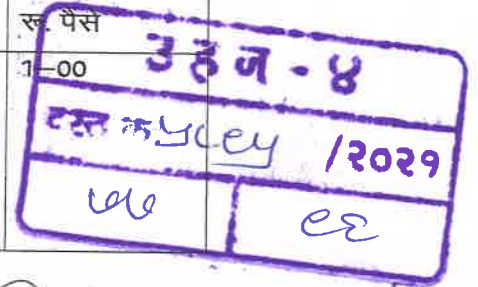 रू. पैसे
1-00
उहज - ४
दस्त क्र ५८९५ /२०२१
७७ ९६